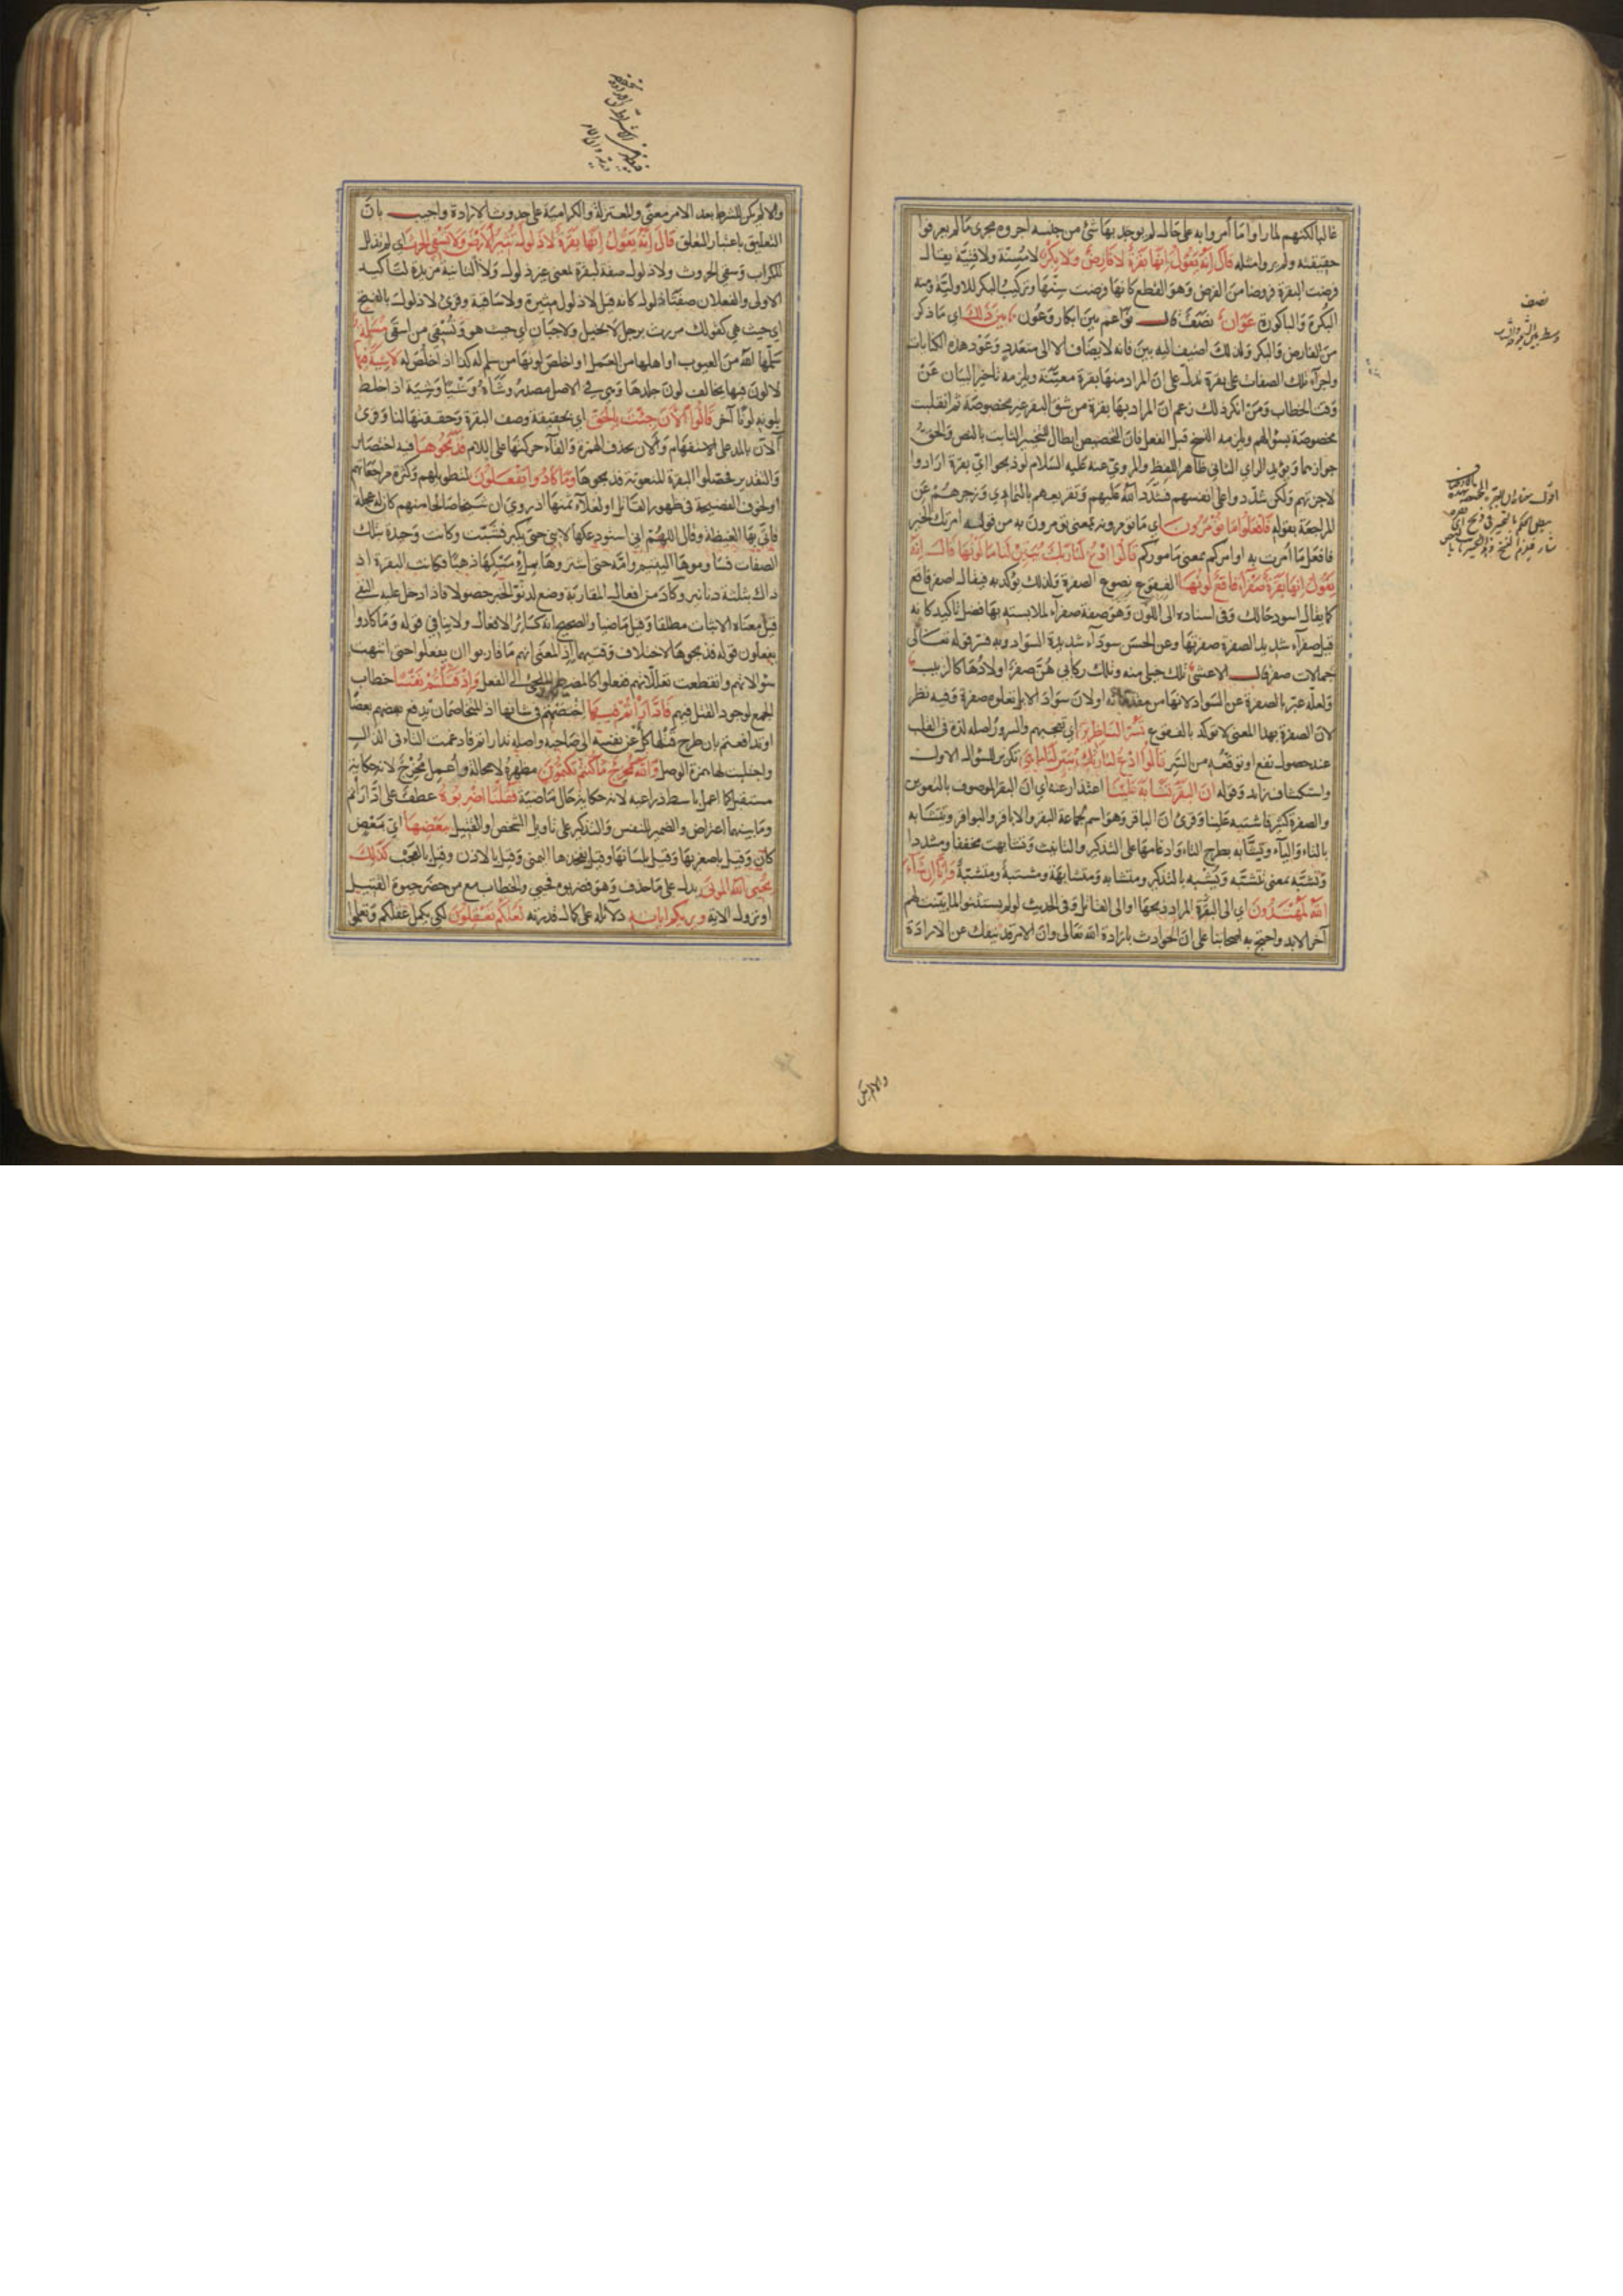 غالبا لكنهم لما راوا ما أمروا به على حال لم يوجد بها شئ من جنسه اجروه مجرى ما لم يعرفوا
حقيقته ولم يروا مثله قَالَ إِنَّهُ يَقُولُ إِنَّهَا بَقَرَةٌ لَا فَارِضٌ وَلَا بِكْرٌ لا مُسِنّة ولا فتِيّة يقال
فرضت البقرة فروضا من الفرض وهو القطع كانها فرضت سنّها وتركيب البكر للاوليّة ومنه
البكرة والباكورة عَوَانٌ نصَفٌ قال نواعم بين ابكار وعُون بَيْنَ ذَلِكَ اي ما ذكر
من الفارض والبكر ولذلك اضيف اليه بين فانه لا يضاف الا الى متعدد وعَوْد هذه الكنايات
واجرآء تلك الصفات على بقرة تدلّ على انّ المراد منها بقرة معيّنة ويلزمه تاخير البيان عن
وقت الخطاب ومن انكر ذلك زعم ان المراد بها بقرة من شق البقر غير مخصوصة ثم انقلبت
مخصوصة بسؤالهم ويلزمه النسخ قبل الفعل فان التخصيص ابطال للتخيير الثابت بالنص والحق
جوازهما ويؤيد الراي الثاني ظاهر اللفظ والمرويّ عنه عليه السلام لو ذبحوا ايّ بقرة ارادوا
لاجزتهم ولكن شدّدوا على انفسهم فشدّد الله عليهم وتقريعهم بالتمادي وزجرهم عن
المراجعة بقوله فَافْعَلُوا مَا تُؤْمَرُونَ اي ما تؤمرونه بمعنى تؤمرون به من قوله امرتك الخير
فافعل ما امرت به او امركم بمعنى ماموركم قَالُوا ادْعُ لَنَا رَبَّكَ يُبَيِّنْ لَنَا مَا لَوْنُهَا قَالَ إِنَّهُ
يَقُولُ إِنَّهَا بَقَرَةٌ صَفْرَآءُ فَاقِعٌ لَوْنُهَا الفقوع نصوع الصفرة ولذلك تؤكد به فيقال اصفر فاقع
كما يقال اسود حالك وفي اسناده الى اللون وهو صفة صفرآء لملابسته بها فضل تاكيد كانه
قيل صفرآء شديد الصفرة صفرتها وعن الحسن سودآء شديدة السواد وبه فسّر قوله تعالى
جمالات صفر قال الاعشى تلك خيلي منه وتلك ركابي هنّ صفر اولادها كالزبيب
ولعلّه عبّر بالصفرة عن السواد لانها من مقدماته او لان سواد الابل يعلوه صفرة وفيه نظر
لان الصفرة بهذا المعنى لا تؤكد بالفقوع تَسُرُّ النَّاظِرِينَ اي تعجبهم والسرور اصله لذة في القلب
عند حصول نفع او توقعه من السِّر قَالُوا ادْعُ لَنَا رَبَّكَ يُبَيِّنْ لَنَا مَا هِيَ تكرير للسؤال الاول
واستكشاف زايد وقوله إِنَّ الْبَقَرَ تَشَابَهَ عَلَيْنَا اعتذار عنه اي ان البقر الموصوف بالتعوين
والصفرة كثير فاشتبه علينا وقرئ ان الباقر وهو اسم لجماعة البقر والاباقر والبواقر ويتشابه
بالتاء والياء وتشّابه بطرح التاء وادغامها على التذكير والتانيث وتشابهت مخففا ومشددا
وتشّبّه بمعنى تتشبّه ويشبه بالتذكير ومتشابه ومتشابهة ومشتبه ومتشبّهة وَإِنَّا إِنْ شَآءَ
اللهُ لَمُهْتَدُونَ اي الى البقرة المراد ذبحها او الى القاتل وفي الحديث لو لم يستثنوا لما بيّنت لهم
آخر الابد واحتج به اصحابنا على ان الحوادث بارادة الله تعالى وان الامر قد ينفك عن الارادة
نصف
والا لم يكن
والا لم يكن للشرط بعد الامر معنًى والمعتزلة والكرامية على حدوث الارادة واجيب بانّ
التعليق باعتبار التعلق قَالَ إِنَّهُ يَقُولُ إِنَّهَا بَقَرَةٌ لَا ذَلُولٌ تُثِيرُ الْأَرْضَ وَلَا تَسْقِي الْحَرْثَ اي لم تذلل
للكراب وسقي الحروث ولا ذلول صفة لبقرة بمعنى غير ذلول ولا الثانية مزيدة لتاكيد
الاولى والفعلان صفتا ذلول كانه قيل لا ذلول مثيرة ولا ساقية وقرئ لا ذلول بالفتح
اي حيث هي كقولك مررت برجل لا بخيل ولا جبان اي حيث هو وتُسْقِي من اسقى مُسَلَّمَةٌ
سلّمها الله من العيوب او اهلها من العمل او اخلص لونها من سلم له كذا اذا خلص له لَا شِيَةَ فِيهَا
لا لون فيها يخالف لون جلدها وهي في الاصل مصدر وشاه وشيا وشية اذا خلط
بلونه لونا آخر قَالُوا الْآنَ جِئْتَ بِالْحَقِّ اي بحقيقة وصف البقرة وحققتها لنا وقرئ
آلآن بالمد على الاستفهام والان بحذف الهمزة والقآء حركتها على اللام فَذَبَحُوهَا فيه اختصار
والتقدير فحصّلوا البقرة المنعوتة فذبحوها وَمَا كَادُوا يَفْعَلُونَ لتطويلهم وكثرة مراجعاتهم
او لخوف الفضيحة في ظهور القاتل او لغلآء ثمنها اذ روي ان شيخا صالحا منهم كان له عجلة
فاتى بها الغيضة وقال اللهم اني استودعكها لابني حتى يكبر فشبّت وكانت وحيدة بتلك
الصفات فساوموها اليتيم وامّه حتى اشتروها بملء مسكها ذهبا وكانت البقرة اذ
ذاك بثلثة دنانير وكاد من افعال المقاربة وضع لدنوّ الخبر حصولا فاذا دخل عليه النفي
قيل معناه الاثبات مطلقا وقيل ماضيا والصحيح انه كسائر الافعال ولا ينافي قوله وما كادوا
يفعلون قوله فذبحوها لاختلاف وقتيهما اذ المعنى انهم ما قاربوا ان يفعلوا حتى انتهت
سؤالاتهم وانقطعت تعللاتهم ففعلوا كالمضطر الملجئ الى الفعل وَإِذْ قَتَلْتُمْ نَفْسًا خطاب
الجمع لوجود القتل فيهم فَادَّارَأْتُمْ فِيهَا اختصمتم في شانها اذ المتخاصمان يدفع بعضهم بعضا
او تدافعتم بان طرح قتلها كل عن نفسه الى صاحبه واصله تدارأتم فادغمت التاء في الدال
واجتلبت لها همزة الوصل وَاللهُ مُخْرِجٌ مَا كُنْتُمْ تَكْتُمُونَ مظهره لا محالة واُعمل مُخْرِجٌ لانه حكاية
مستقبل كما اعمل باسط ذراعيه لانه حكاية حال ماضية فَقُلْنَا اضْرِبُوهُ عطف على ادّارأتم
وما بينهما اعتراض والضمير للنفس والتذكير على تاويل الشخص او القتيل بِبَعْضِهَا ايّ بعض
كان وقيل باصغريها وقيل بلسانها وقيل بفخذها اليمنى وقيل بالاذن وقيل بالعجب كَذَلِكَ
يُحْيِي اللهُ الْمَوْتَى يدل على ما حذف وهو فضربوه فحيي والخطاب مع من حضر حيوة القتيل
او نزول الاية وَيُرِيكُمْ آيَاتِهِ دلآئله على كمال قدرته لَعَلَّكُمْ تَعْقِلُونَ لكي يكمل عقلكم وتعلموا